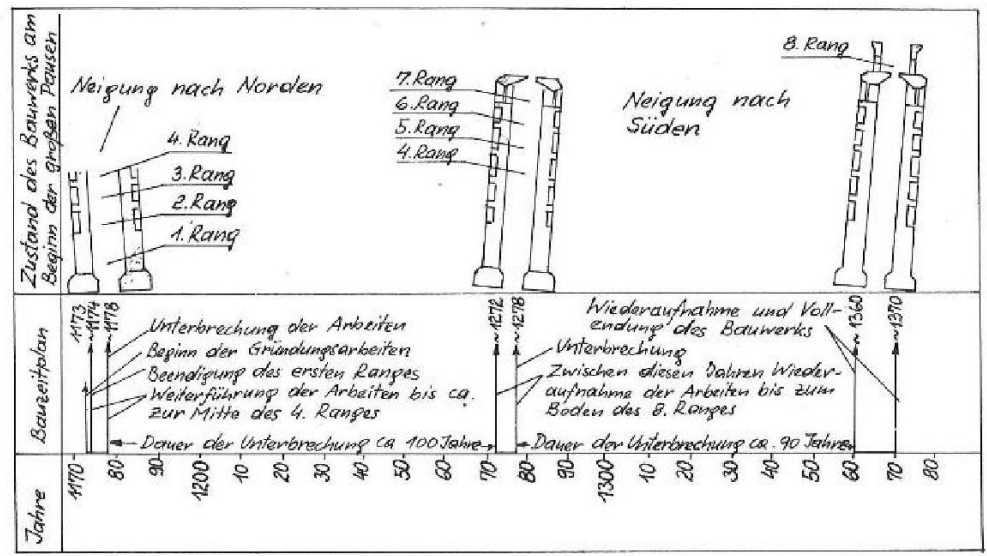 Zustand des Bauwerks am
Beginn der großen Pausen
Neigung nach Norden
4. Rang
3. Rang
2. Rang
1. Rang
7. Rang
6. Rang
5. Rang
4. Rang
Neigung nach
Süden
8. Rang
Bauzeitplan
1173
~1174
~1178
Unterbrechung der Arbeiten
Beginn der Gründungsarbeiten
Beendigung des ersten Ranges
Weiterführung der Arbeiten bis ca.
zur Mitte des 4. Ranges
Dauer der Unterbrechung ca 100 Jahre
~1272
~1278
Wiederaufnahme und Voll-
endung des Bauwerks
Unterbrechung
Zwischen diesen Jahren Wieder-
aufnahme der Arbeiten bis zum
Boden des 8. Ranges
Dauer der Unterbrechung ca. 90 Jahre
~1360
~1370
Jahre
1170
80
90
1200
10
20
30
40
50
60
70
80
90
1300
10
20
30
40
50
60
70
80